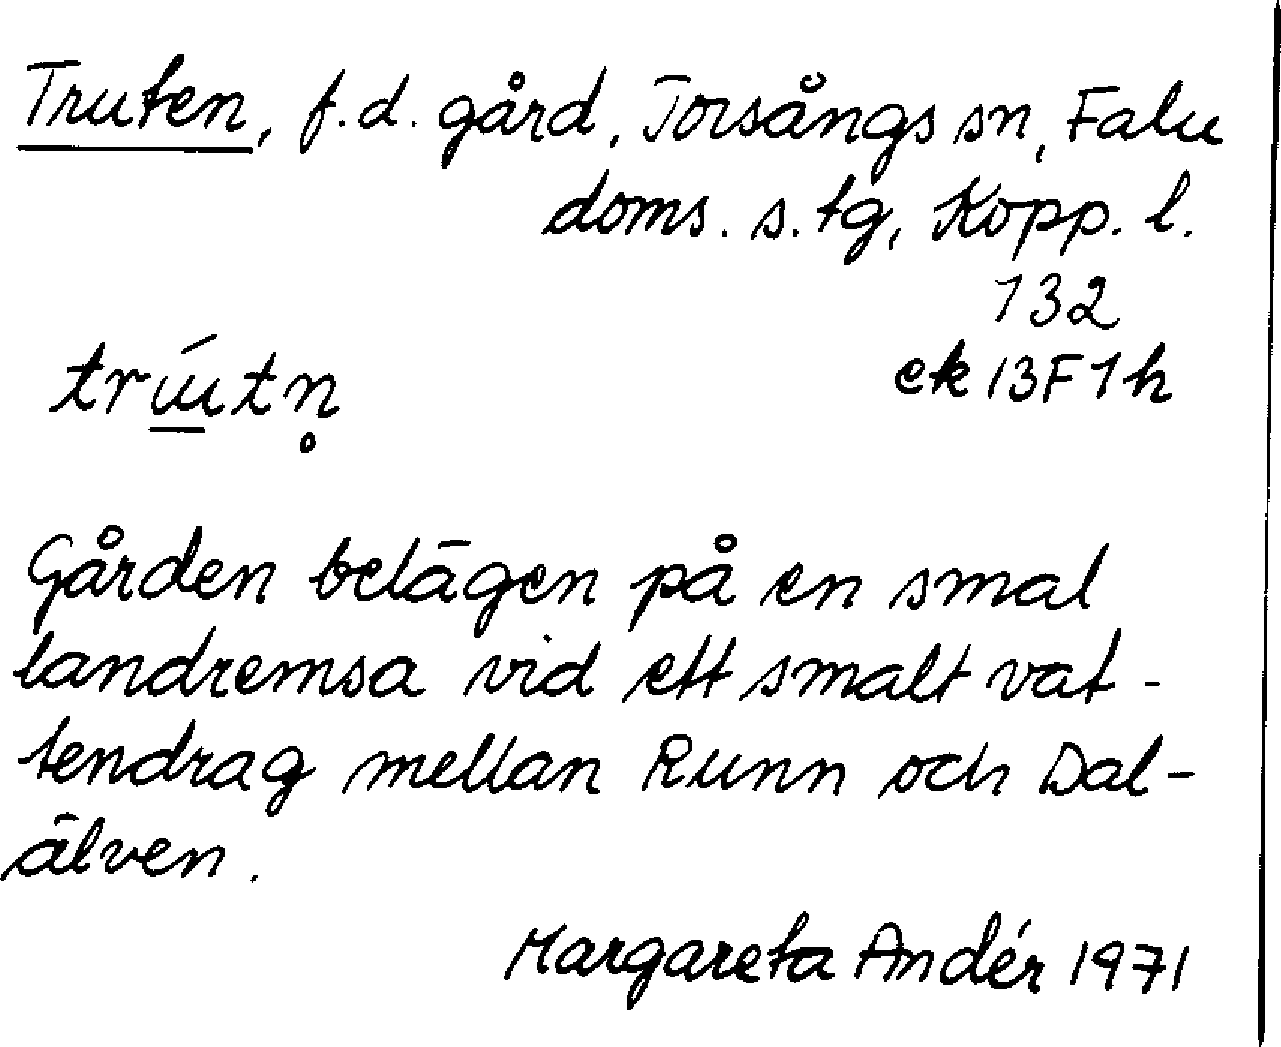 Truten, f.d. gård, Torsångs sn, Falu
doms. s. tg, Kopp. l.
132
trú̲tn̥
ek 13F1h
Gården belägen på en smal
landremsa vid ett smalt vat-
tendrag mellan Runn och Dal-
älven.
Margareta Andér 1971